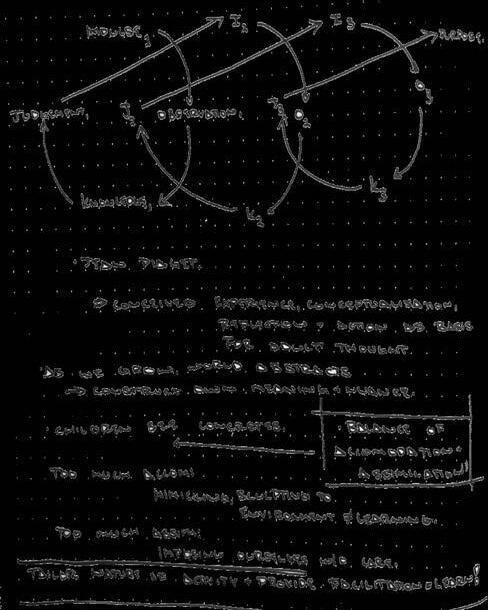 IMPULSE₁ I₂ I3 PURPOSE.
JUDGEMENT₁ J₂ OBSERVATION₁ J₃ O₂ O₃
KNOWLEDGE₁ K₂ K₃
· JEAN PIAGET.
→ CONCEIVED EXPERIENCE, CONCEPTUALIZATION,
REFLECTION + ACTION AS BASIS
FOR ADULT THOUGHT.
· AS WE GROW, WORLD ABSTRACTS
→ CONSTRUCT OWN MEANING + NUANCE.
· CHILDREN SEE CONCRETES.
· BALANCE OF
ACCOMMODATION +
ASSIMILATION!
TOO MUCH ACCOM:
MIMICKING, SCULPTING TO
ENVIRONMENT, ≠ LEARNING.
TOO MUCH ASSIM:
IMPOSING OURSELVES W/O CARE.
TAILOR NATURE IS IDENTIFY + PROVIDE. FACILITATION = LEARN!